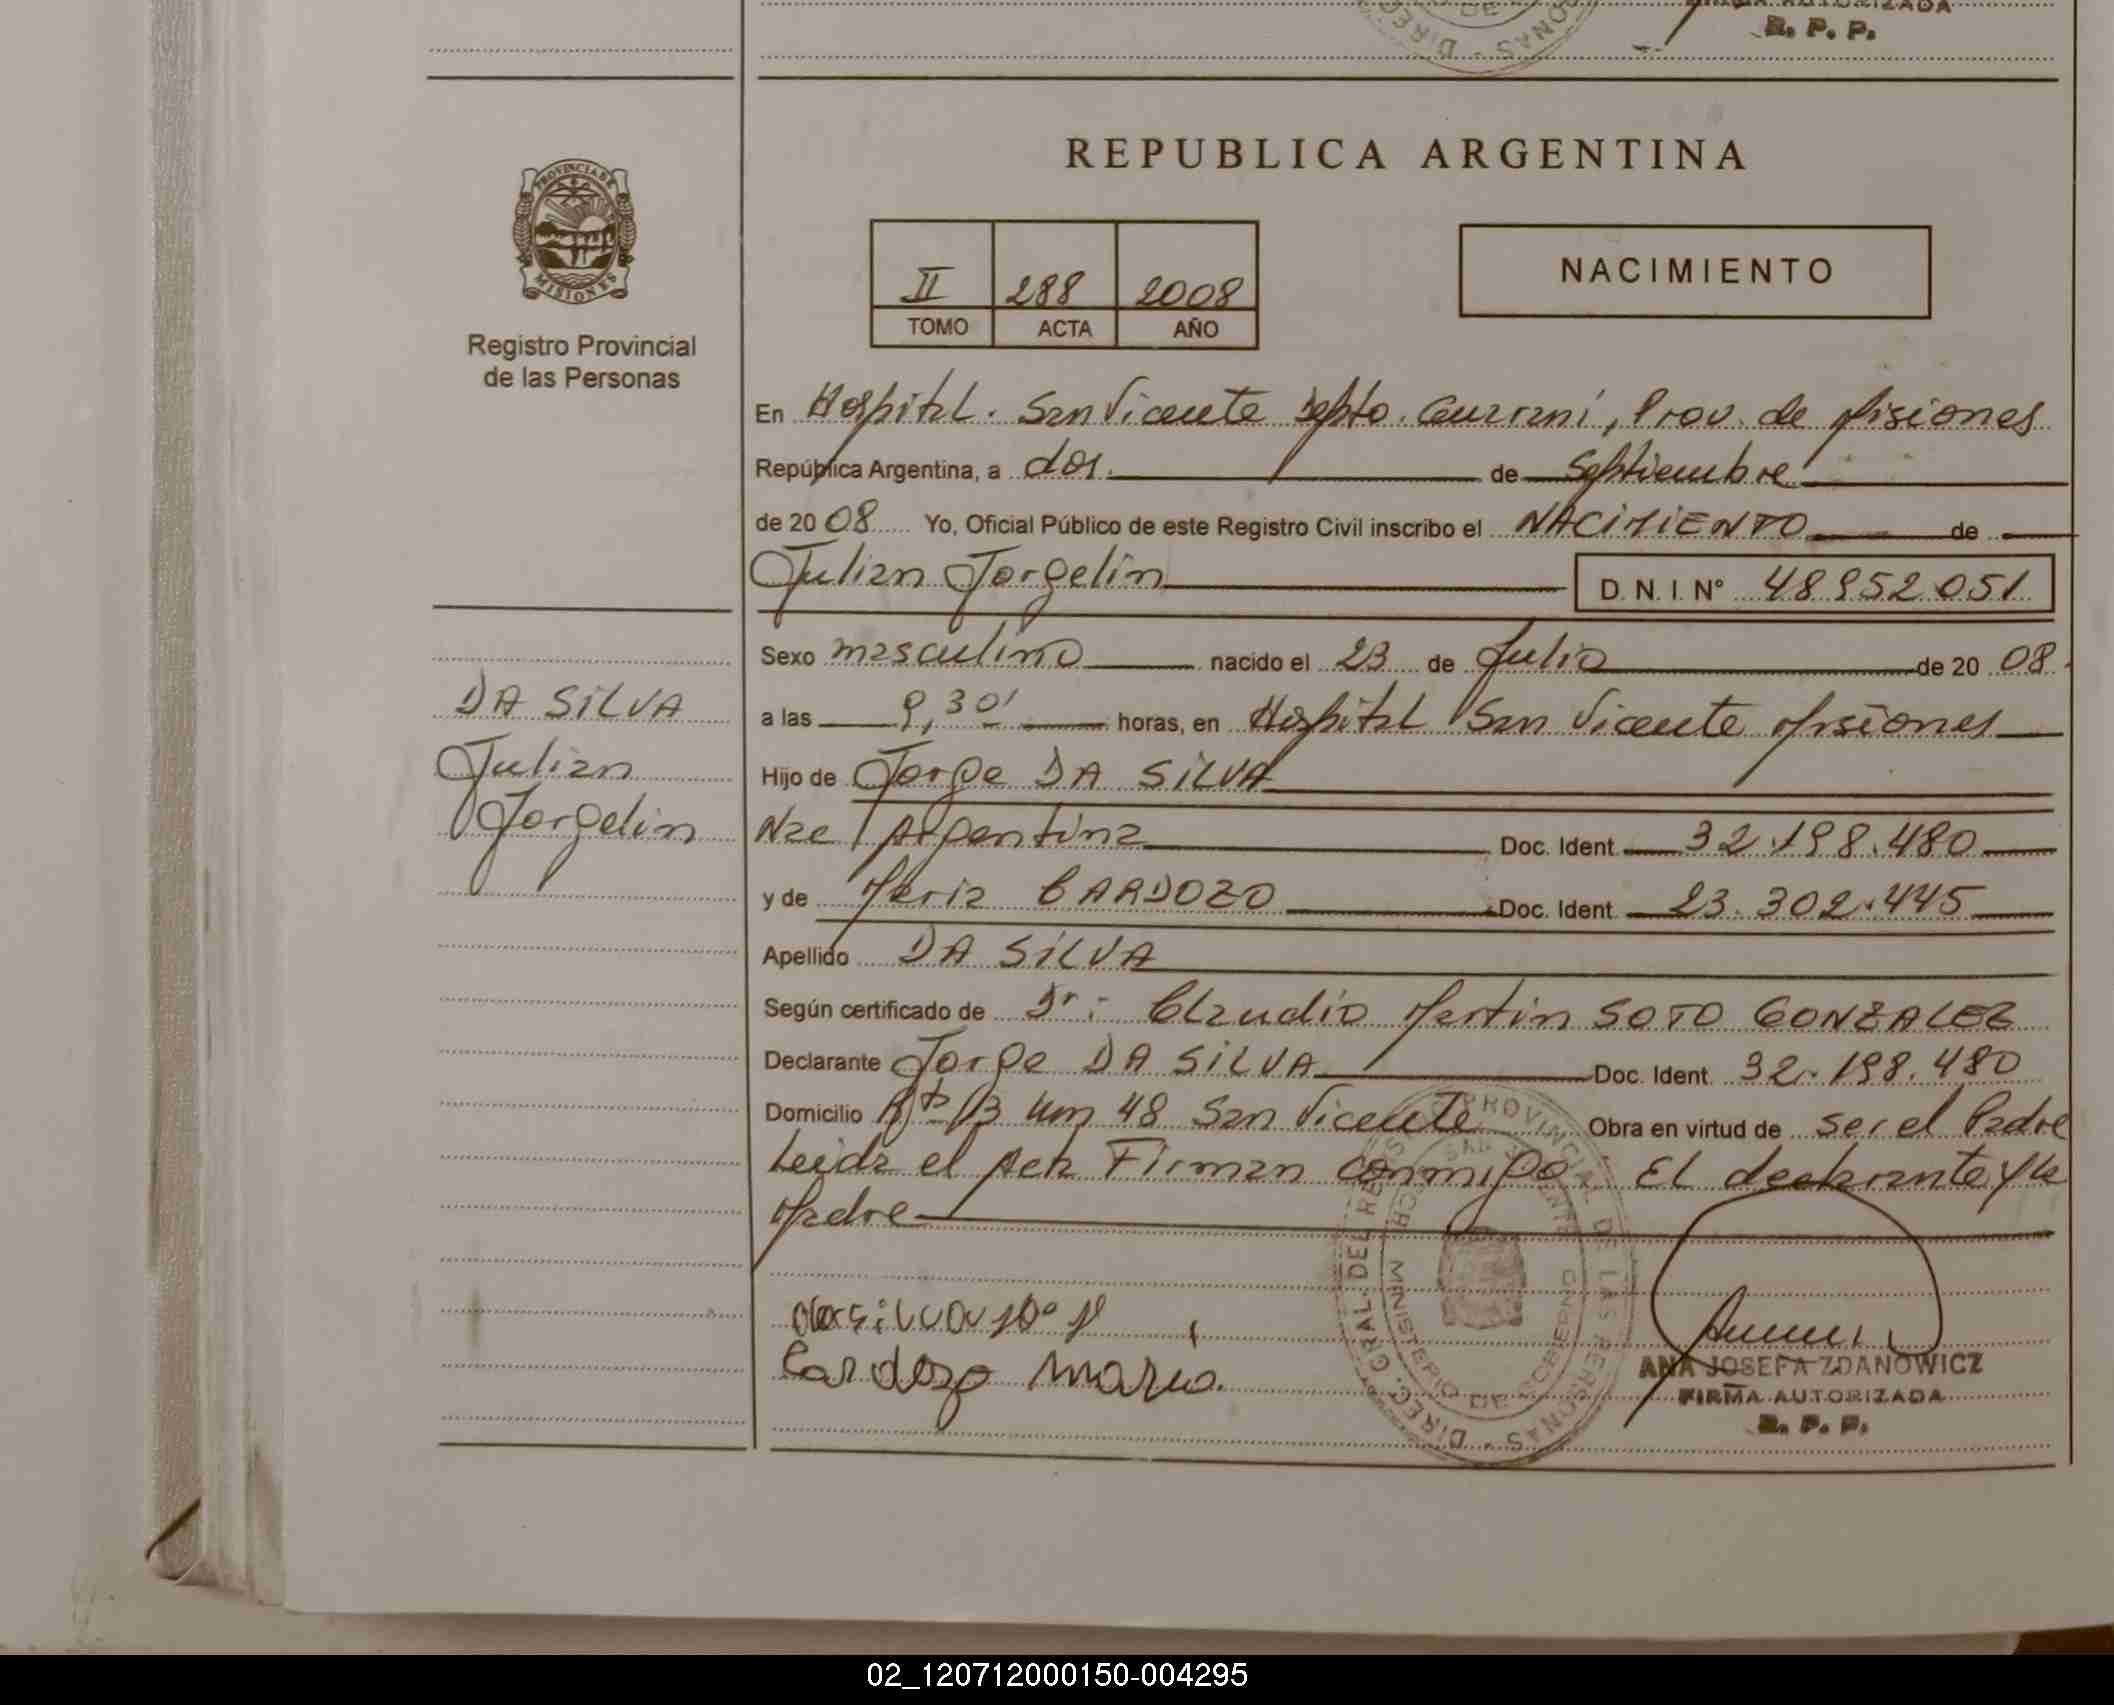 FIRMA AUTORIZADA
R. P. P.
PROVINCIA DE
MISIONES
Registro Provincial
de las Personas
REPUBLICA ARGENTINA
II 288 2008
TOMO ACTA AÑO
NACIMIENTO
En Hospital. San Vicente Depto. Guarani, Prov. de Misiones
República Argentina, a dos. de Septiembre
de 20 08 Yo, Oficial Público de este Registro Civil inscribo el NACIMIENTO de
Julian Jorgelin D. N. I. Nº 48952051
Sexo masculino nacido el 23 de Julio de 20 08
a las 9,30' horas, en Hospital San Vicente Misiones
Hijo de Jorge DA SILVA
Nac Argentina Doc. Ident. 32.198.480
y de Maria CARDOZO Doc. Ident. 23.302.445
Apellido DA SILVA
Según certificado de Dr: Claudio Martin SOTO GONZALEZ
Declarante Jorge DA SILVA Doc. Ident. 32.198.480
Domicilio Rta 13 km 48 San Vicente Obra en virtud de ser el Padre
Leida el Acta Firman conmigo El declarante y la
Madre
DA SILVA
Julian
Jorgelin
Cardozo Maria.
DIREC. GRAL. DEL REGISTRO PROVINCIAL DE LAS PERSONAS
MINISTERIO DE GOBIERNO
SAN VICENTE
ANA JOSEFA ZDANOWICZ
FIRMA AUTORIZADA
R. P. P.
02_120712000150-004295